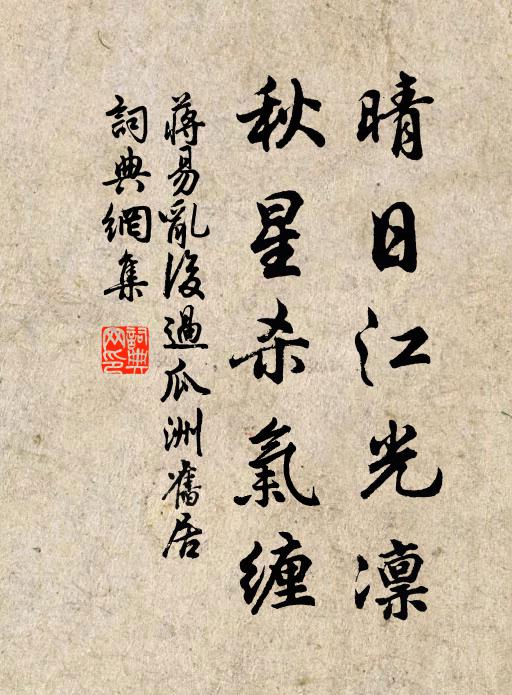 晴日江光凛
秋星杀氣缠
蔣易亂後過瓜洲舊居
詞典網集
詞典网印